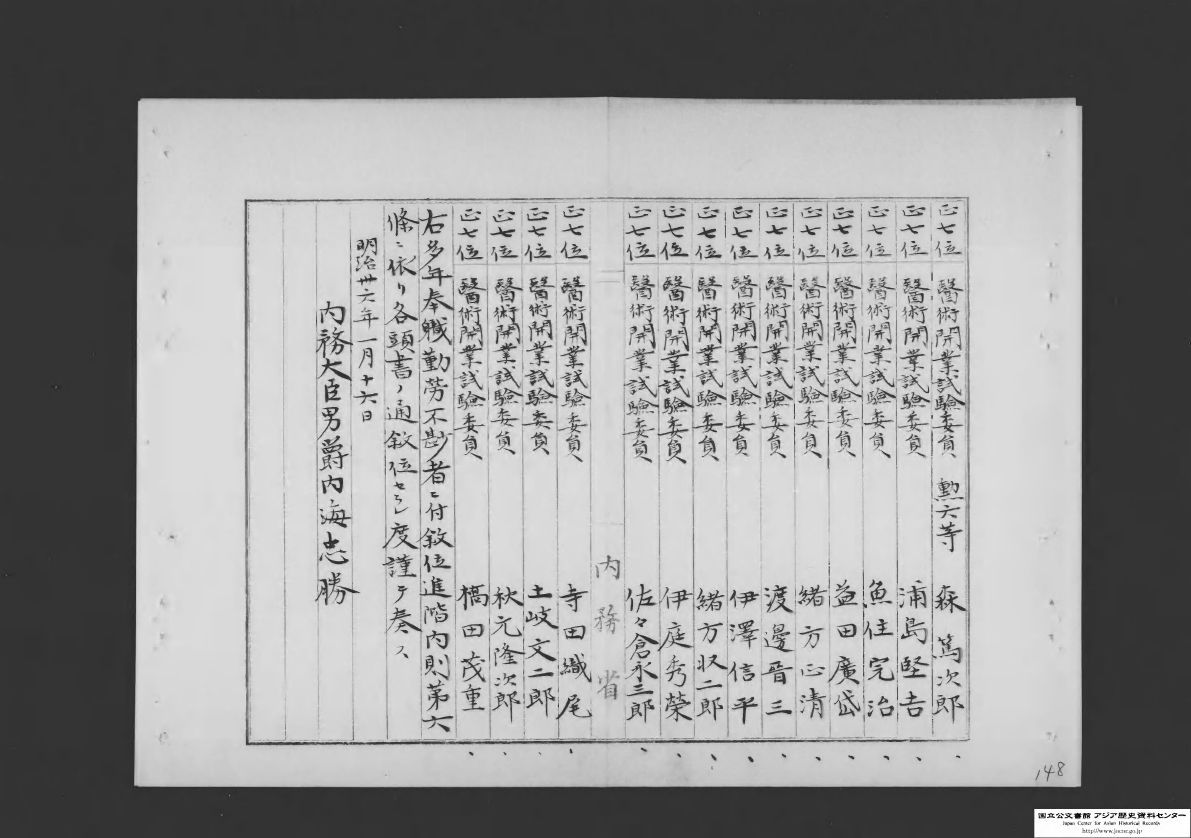 正七位 醫術開業試驗委員 勲六等 森篤次郎
正七位 醫術開業試驗委員 浦島堅吉
正七位 醫術開業試驗委員 魚住完治
正七位 醫術開業試驗委員 益田廣岱
正七位 醫術開業試驗委員 緒方正清
正七位 醫術開業試驗委員 渡邊晋三
正七位 醫術開業試驗委員 伊澤信平
正七位 醫術開業試驗委員 緒方収二郎
正七位 醫術開業試驗委員 伊庭秀榮
正七位 醫術開業試驗委員 佐々倉永三郎
内務省
正七位 醫術開業試驗委員 寺田織尾
正七位 醫術開業試驗委員 土岐文二郎
正七位 醫術開業試驗委員 秋元隆次郎
正七位 醫術開業試驗委員 橋田茂重
右多年奉職勤労不尠者ニ付敘位進階内則第六
條ニ依リ各頭書ノ通敘位セラレ度謹テ奏ス
明治卅六年一月十六日
内務大臣男爵内海忠勝
148
国立公文書館 アジア歴史資料センター
Japan Center for Asian Historical Records
http://www.jacar.go.jp